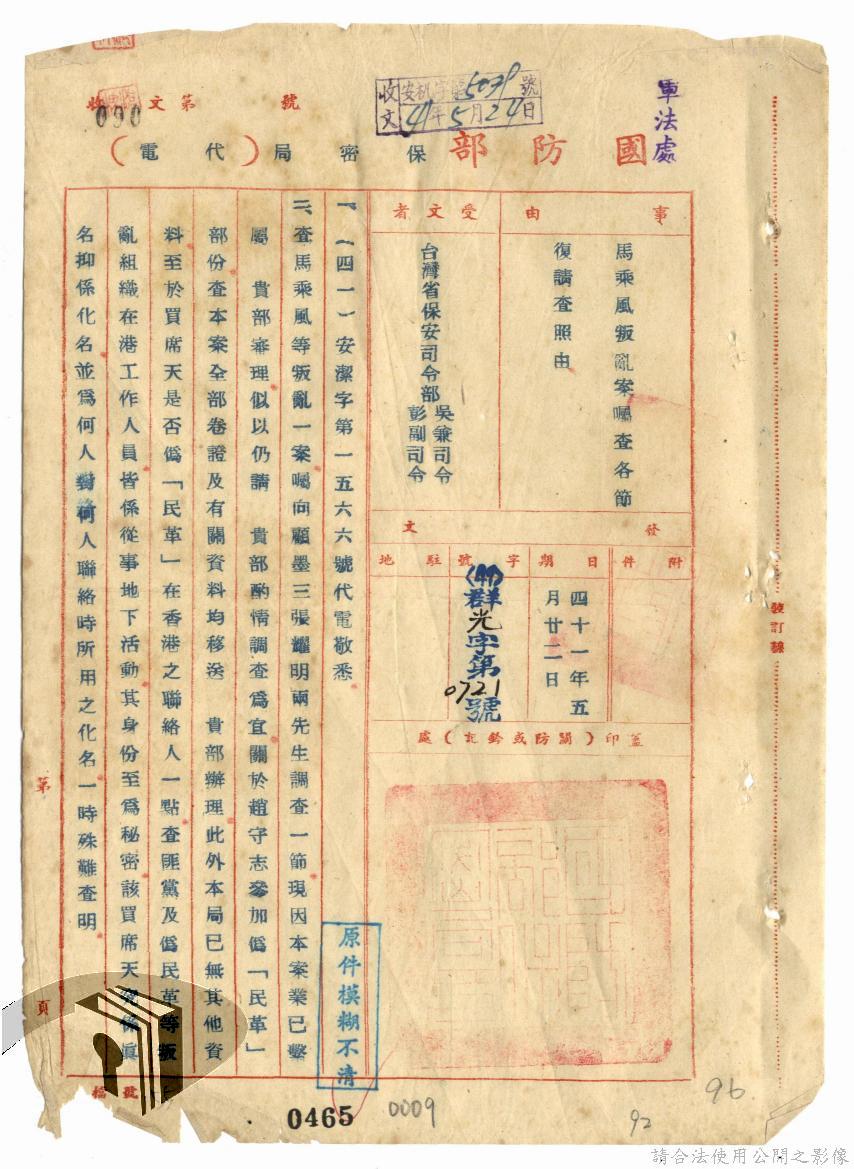 軍法處
收文 安機字第5079號
41年5月24日
收文第 號
090
國防部保密局(代電)
事由
馬乘風叛亂案囑查各節
復請查照由
受文者
台灣省保安司令部 吳兼司令
彭副司令
發文
附件
日期
四十一年五
月廿二日
字號
(41)群光字第0721號
駐地
蓋印(關防或鈐記)處
一、(四一)安潔字第一五六六號代電敬悉
二、查馬乘風等叛亂一案囑向顧墨三張耀明兩先生調查一節現因本案業已繫
屬 貴部審理似以仍請 貴部酌情調查為宜關於趙守志參加偽「民革」
部份查本案全部卷證及有關資料均移送 貴部辦理此外本局已無其他資
料至於買席天是否偽「民革」在香港之聯絡人一點查匪黨及偽民革等叛
亂組織在港工作人員皆係從事地下活動其身份至為秘密該買席天究係真
名抑係化名並為何人對何人聯絡時所用之化名一時殊難查明
原件模糊不清
裝訂線
第
頁
檔號
0465
0009
92
96
請合法使用公開之影像